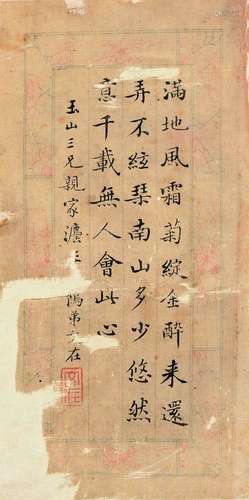 滿地風霜菊綻金醉来還
弄不絃琹南山多少悠然
意千載無人會此心
玉山三兄親家灋三
弟
在